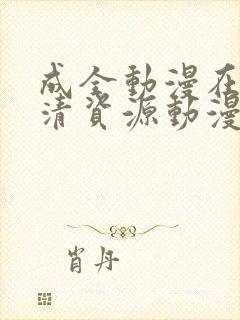 成全動漫在
清資源動漫
肖丹